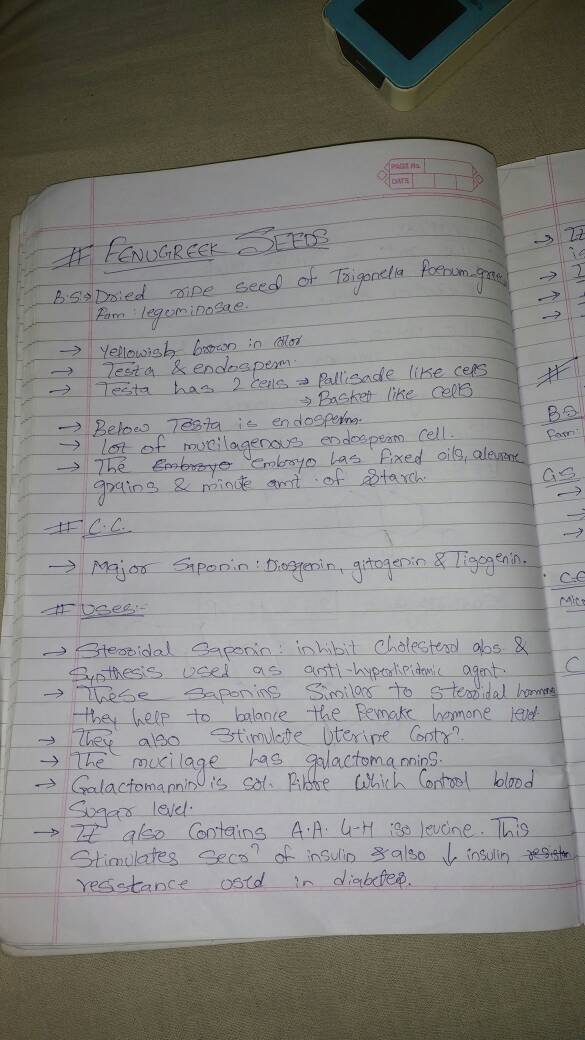 PAGE No.
DATE
# FENUGREEK SEEDS
B.S → Dried ripe seed of Trigonella Foenum-
Fam: leguminosae.
→ Yellowish brown in color
→ Testa & endosperm.
→ Testa has 2 cells → Pallisade like cells
→ Basket like cells
→ Below Testa is endosperm.
→ Lot of mucilagenous endosperm cell.
→ The Embroyo embryo has fixed oils, aleurone
grains & minute amt. of Starch.
# C.C.
→ Major Saponin: Diosgenin, gitogenin & Tigogenin.
# Uses:-
→ Steroidal Saponin: inhibit Cholesterol abs. &
Synthesis used as anti-hyperlipidemic agent.
→ These Saponins Similar to steroidal hormone
they help to balance the Female hormone level
→ They also Stimulate Uterine Contrn.
→ The mucilage has galactomannins.
→ Galactomannin is sol. Fibre Which Control blood
Sugar level.
→ It also Contains A.A. 4-H iso leucine. This
Stimulates Secrn of insulin & also ↓ insulin
resistance used in diabetes.
→ It
→
→
→
#
B.S
Fam:
G.S
→
→
→
C.C
Mico
C